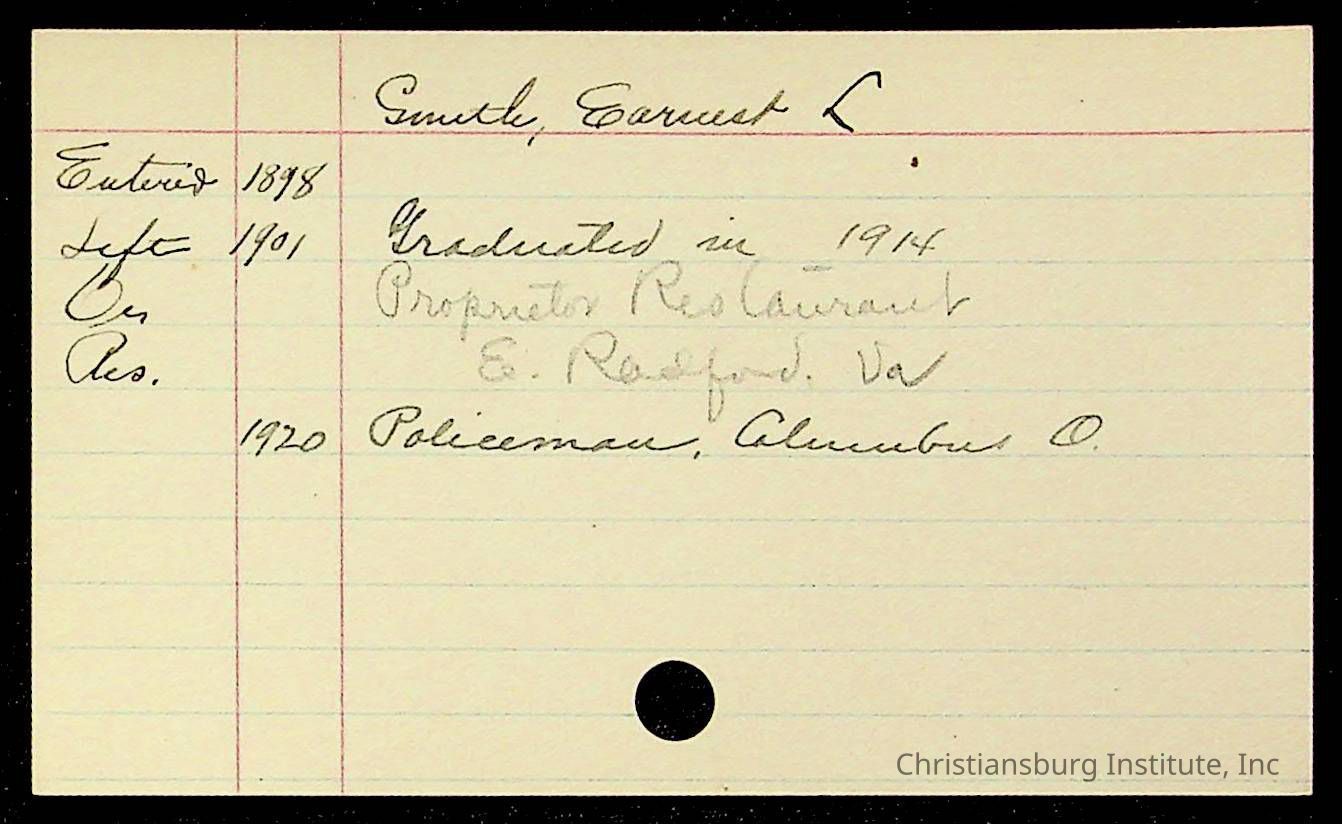 Smith, Earnest L
Entered 1898
Left 1901 Graduated in 1914
Oc Proprietor Restaurant
Res. E. Radford. Va
1920 Policeman, Columbus O.
Christiansburg Institute, Inc